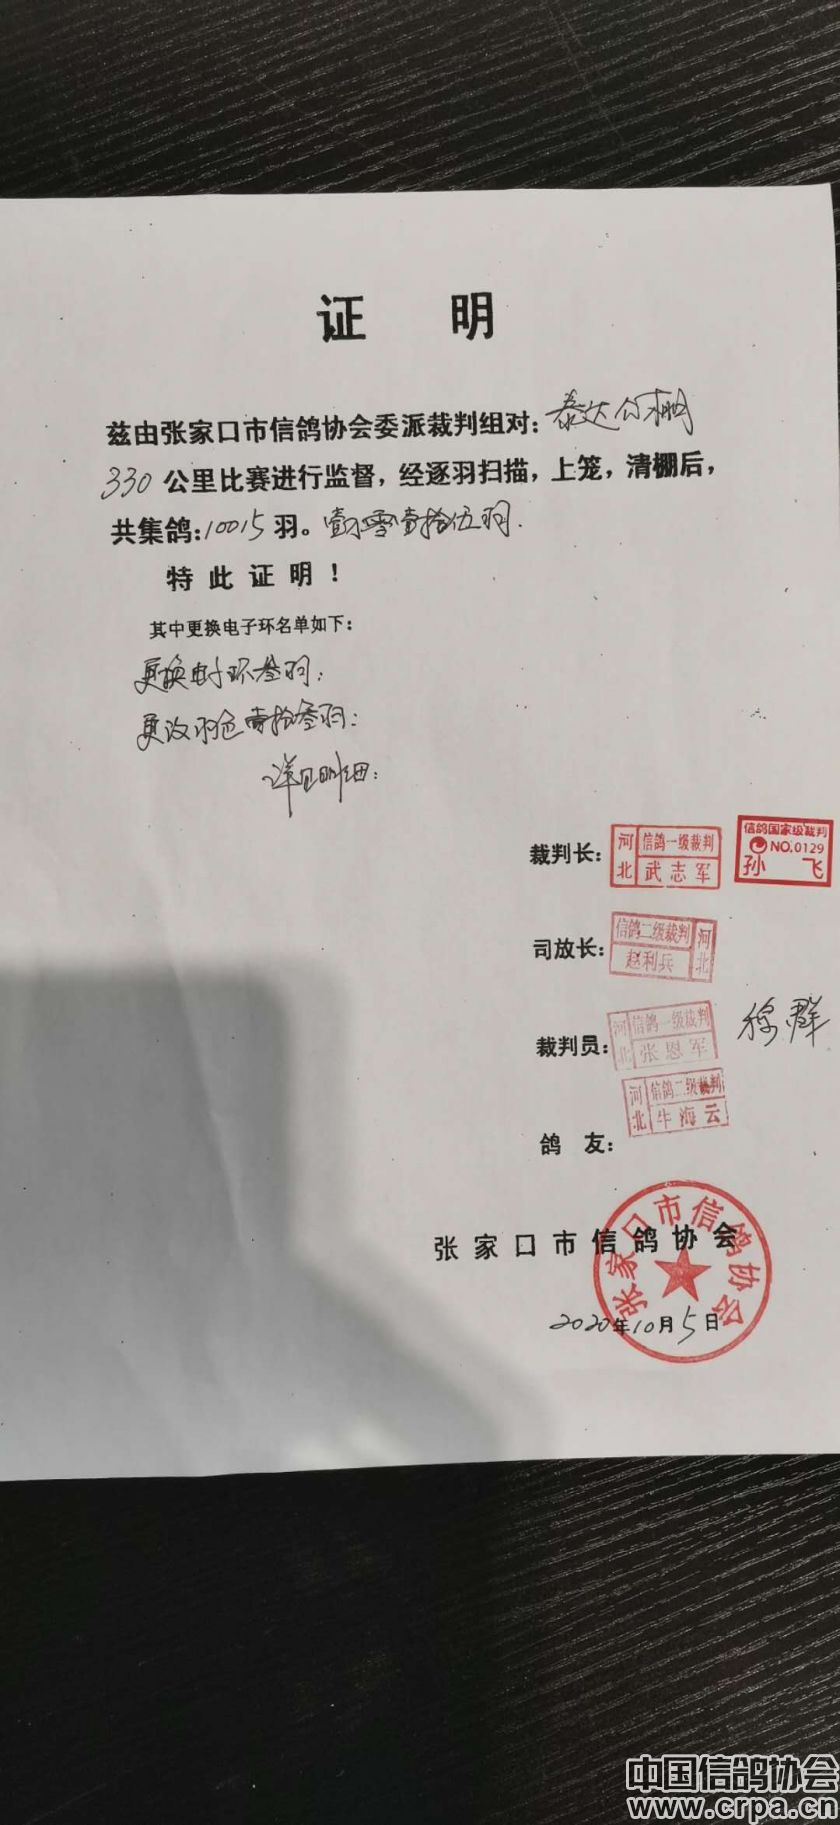 证 明
兹由张家口市信鸽协会委派裁判组对：泰达公棚
330公里比赛进行监督，经逐羽扫描，上笼，清棚后，
共集鸽：10015羽。壹万零壹拾伍羽.
特此证明！
其中更换电子环名单如下：
更换电子环叁羽：
更改羽色壹拾叁羽：
详见明细：
裁判长：
河北 信鸽一级裁判 武志军
信鸽国家级裁判 NO.0129 孙飞
司放长：
信鸽二级裁判 赵利兵 河北
裁判员：
河北 信鸽一级裁判 张恩军
穆群
河北 信鸽二级裁判 牛海云
鸽 友：
张家口市信鸽协会
张家口市信鸽协会
2020年10月5日
中国信鸽协会
www.crpa.cn